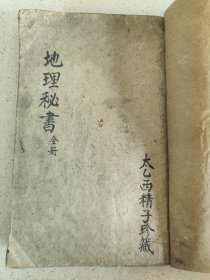 地理秘書全册
太乙西精子珍藏